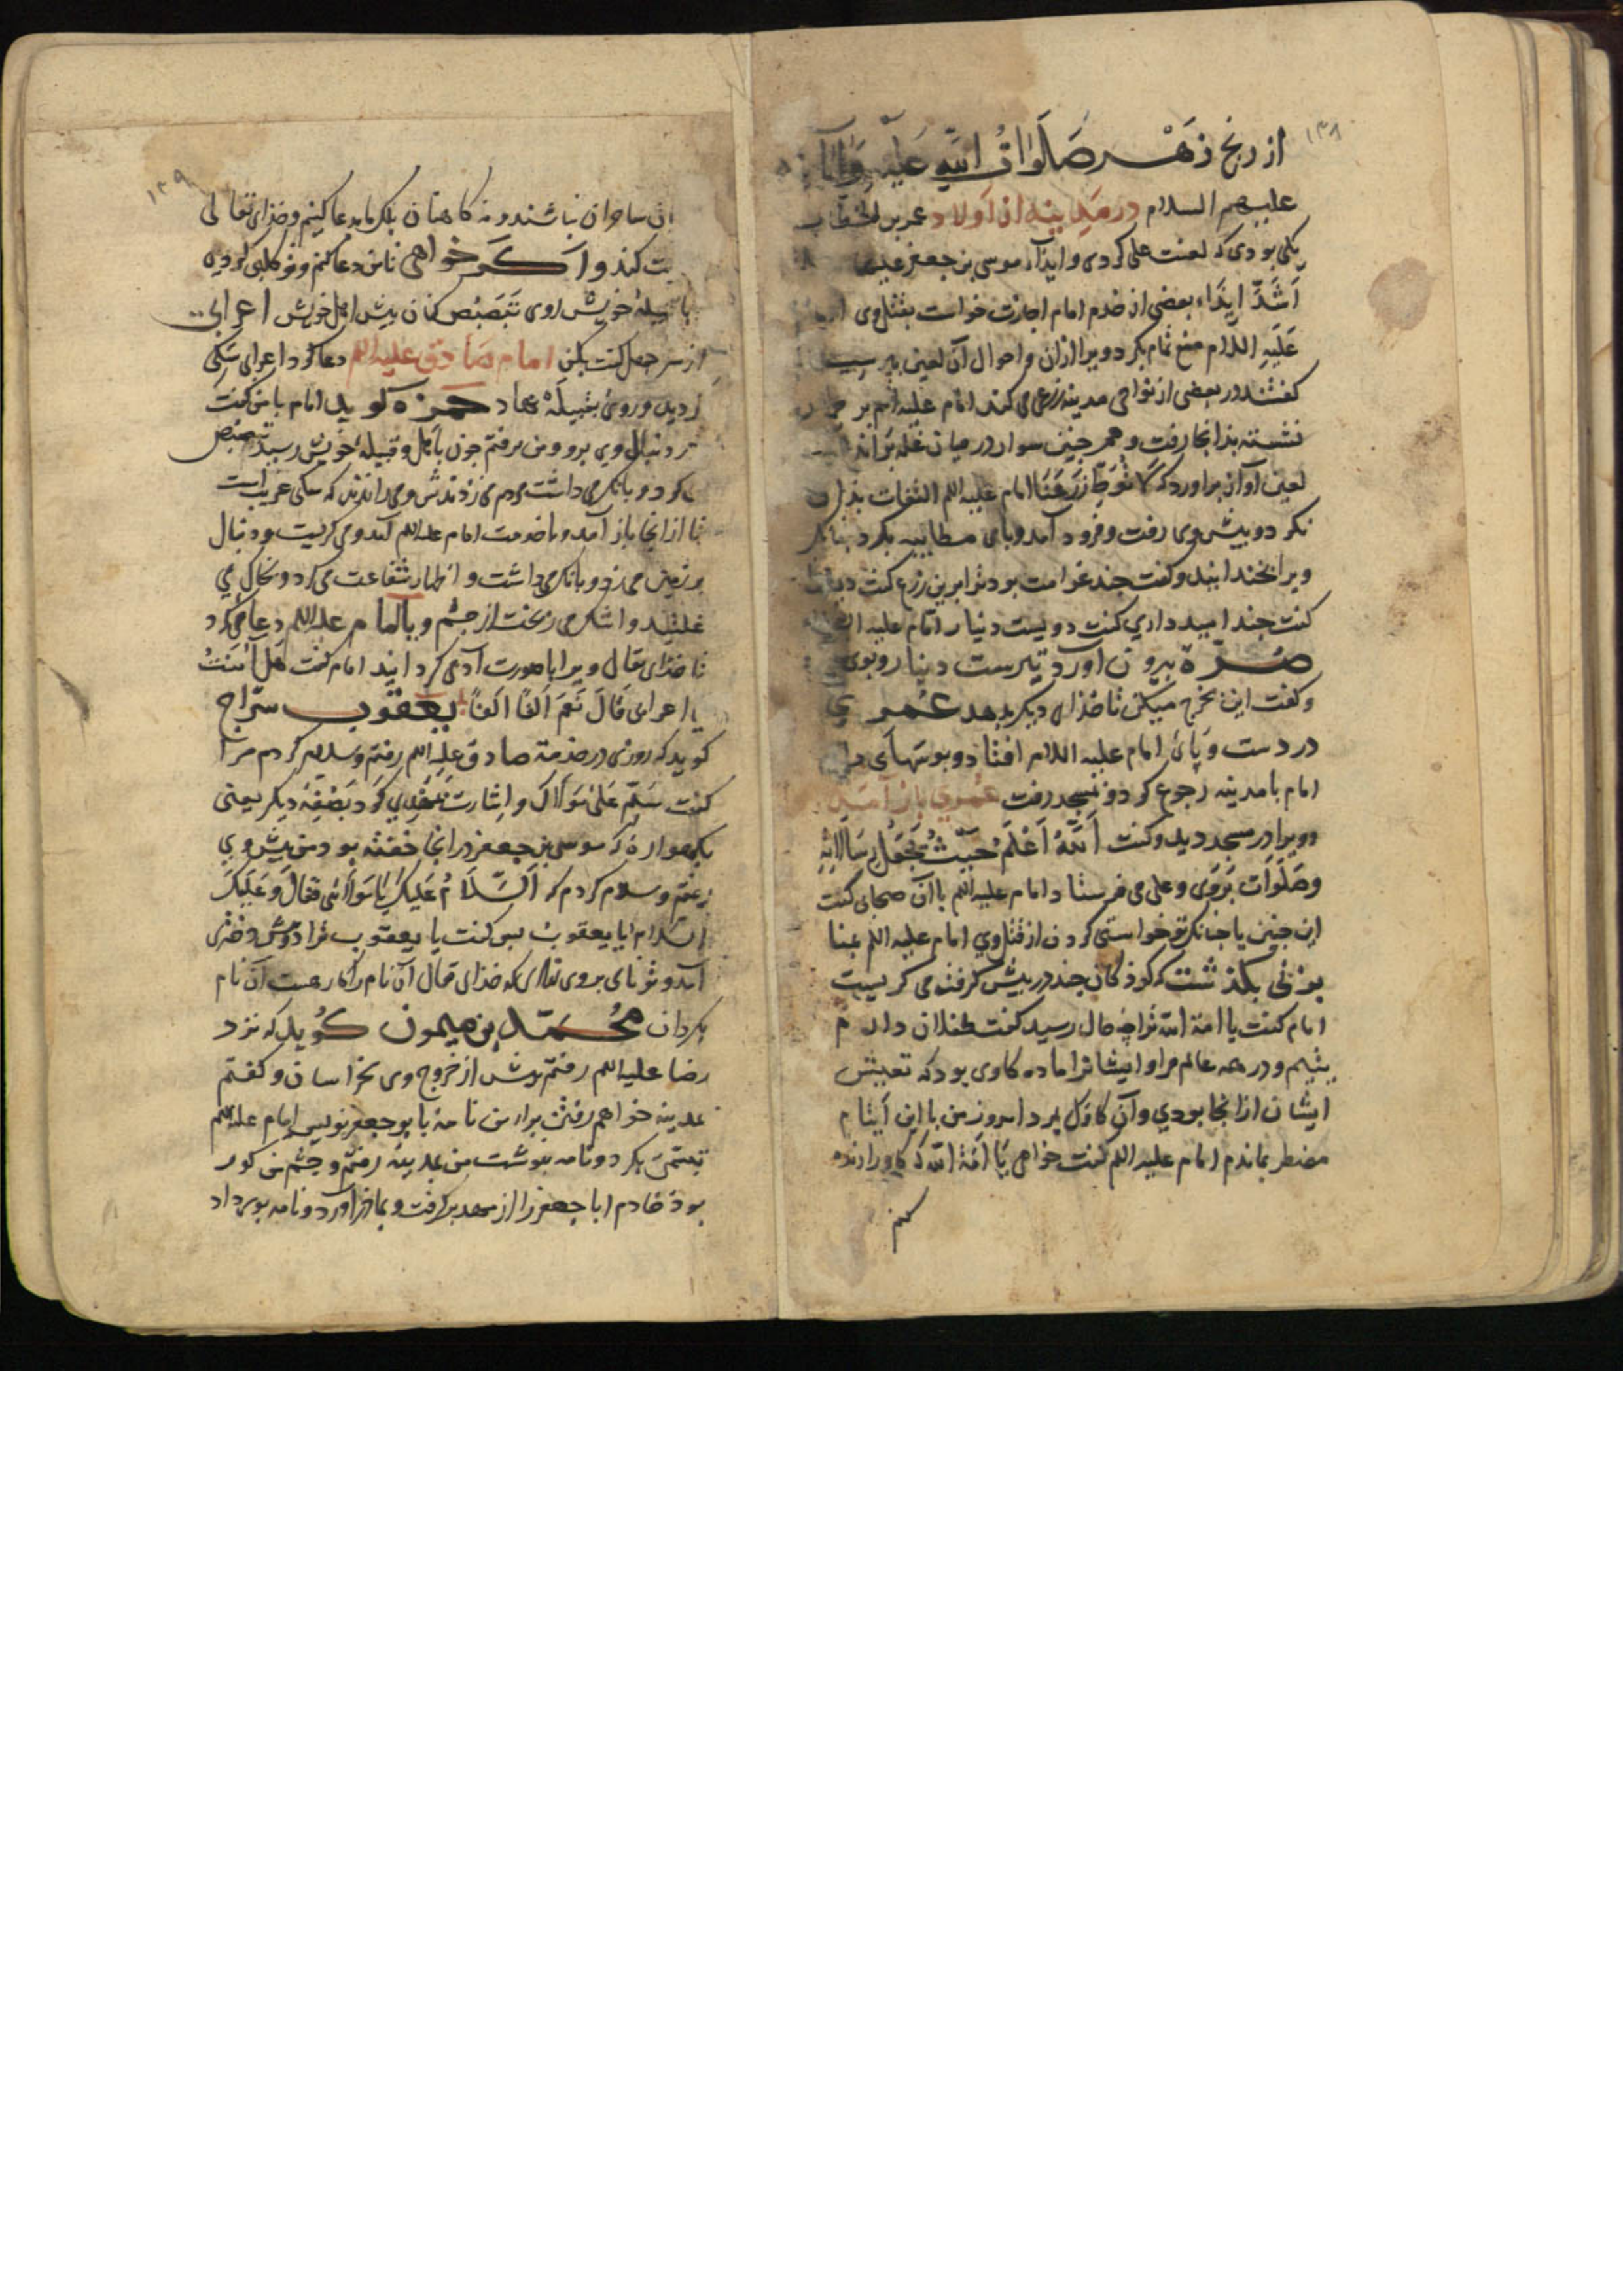 ۱۳۸
از رنج زهر صَلَوَاتُ اللهِ عَلَيْهِ وَآبَآئِه
عليهم السلام در مدینه از اولاد عمر بن الخطاب
یکی بودی که لعنت علی کردی و ایذآء موسی بن جعفر علیهما
اَشَدّ ایذَاء بعضی از خدم امام اجازت خواست بقتل وی امام
عَلَیهِ السلام منع تمام بکرد و ویرا ازان و احوال آن لعین
کفتند در بعضی از نواحی مدینه زرعی می کند امام علیه السلم بر
نشسته بذانجا رفت و همجنین سوار در میان غله براند
لعین آواز براورد که لَا تُوَطِّ زَرْعَنَا امام علیه السلم التفات بذان
نکرد و بیش وی رفت و فرود آمد و باوی مطایبه بکرد جنانکه
ویرا بخندانید و کفت جند غرامت بود ترا برین زرع کفت
کفت جند امید داري کفت دویست دینار امام علیه السلم
صُرّة بیرون آورد سیصد دینار و بوی
و کفت این بخرج میکن تا خذای دیکر بدهد عُمَری
در دست و پای امام علیه السلام افتاد و بوسهای
امام بامدینه رجوع کرد و بمسجد رفت عُمَری باز آمد
و ویرا در مسجد دید و کفت اَللّهُ اَعْلَمُ حَیْثُ یَجْعَلُ رِسَالَاتِهِ
و صَلَوَات بروی و علی می فرستاد امام علیه السلم باآن صحابی کفت
این جنین یا جنانکه تو خواستی کردن از قتل وي امام علیه السلم بمنا
بزنی بکذشت که کوذکان جند در بیش کرفته می کریست
امام کفت یا امة الله ترا چه حال رسید کفت طفلان دارم
یتیم و در همه عالم مرا و ایشانرا ماده کاوی بود که تعیش
ایشان ازانجا بودي و آن کاوک بمرد امروز من با این ایتام
مضطر بماندم امام علیه السلم کفت خواهی یَا اَمَةَ الله که کاو را زنده
کنم
۱۳۹
ان ساحران نباشند و نه کاهنان بلکه ما دعا کنیم و خذای تعالی
بت کند و اکر خواهی تا من دعا کنم و تو کلبی کردی
با قبیلهٔ خویش روی تَبَصْبُص کنان بیش اهل خویش اعرابی
از سر جهل کفت بکن امام صادق علیه السلم دعا کرد اعرابی سکی
کردید و روی بقبیله نهاد حمزه کوید امام بامن کفت
در دنبال وي برو و من برفتم جون باهل و قبیلهٔ خویش رسید تبصبص
می کرد و بانک می داشت مردم می زدندش و می راندند که سکی غریب است
تا ازانجا باز آمد و باخدمت امام علیه السلم آمد و می کریست و دنبال
بر زمین می زد و بانک می داشت و اظهار شفاعت می کرد و بخاک می
غلتید و اشک می ریخت از جشم و با امام علیه السلم دعا می کرد
تا خذای تعالی ویرا باصورت آدمی کردانید امام کفت هَلْ آمَنْتَ
یا اعرابی قَالَ نَعَمْ اَلفًا اَلفًا یعقوب سَرّاج
کوید که روزی در خدمة صادق علیه السلم رفتم و سلام کردم مرا
کفت سَلِّمْ عَلیٰ مَولَاکَ و اشارت بمَهْدِي کرد بصُفّة دیکر یعنی
بکهوارهٔ که موسی بن جعفر درانجا خفته بود من بیش وي
رفتم و سلام کردم که اَلسَّلَامُ عَلَیكَ یَا مَولَائی فقَالَ وَ عَلَیكَ
السّلام ایا یعقوب بس کفت یا یعقوب ترا دوش دختری
آمد و تو نای بروی نهادی که خذای تعالی آن نام را کاره است آن نام
بکردان مُحمّد بن میمون کُوید که نزد
رضا علیه السلم رفتم بیش از خروج وی بخراسان و کفتم
بمدینه خواهم رفتن برای من نامهٔ با بوجعفر نویس امام علیه السلم
تبسّمی بکرد و نامه بنوشت من بمدینه رفتم و جشم من کور
بوذ خادم اباجعفر را از مهد برکرفت و بما فرا آورد و نامه بوی داد